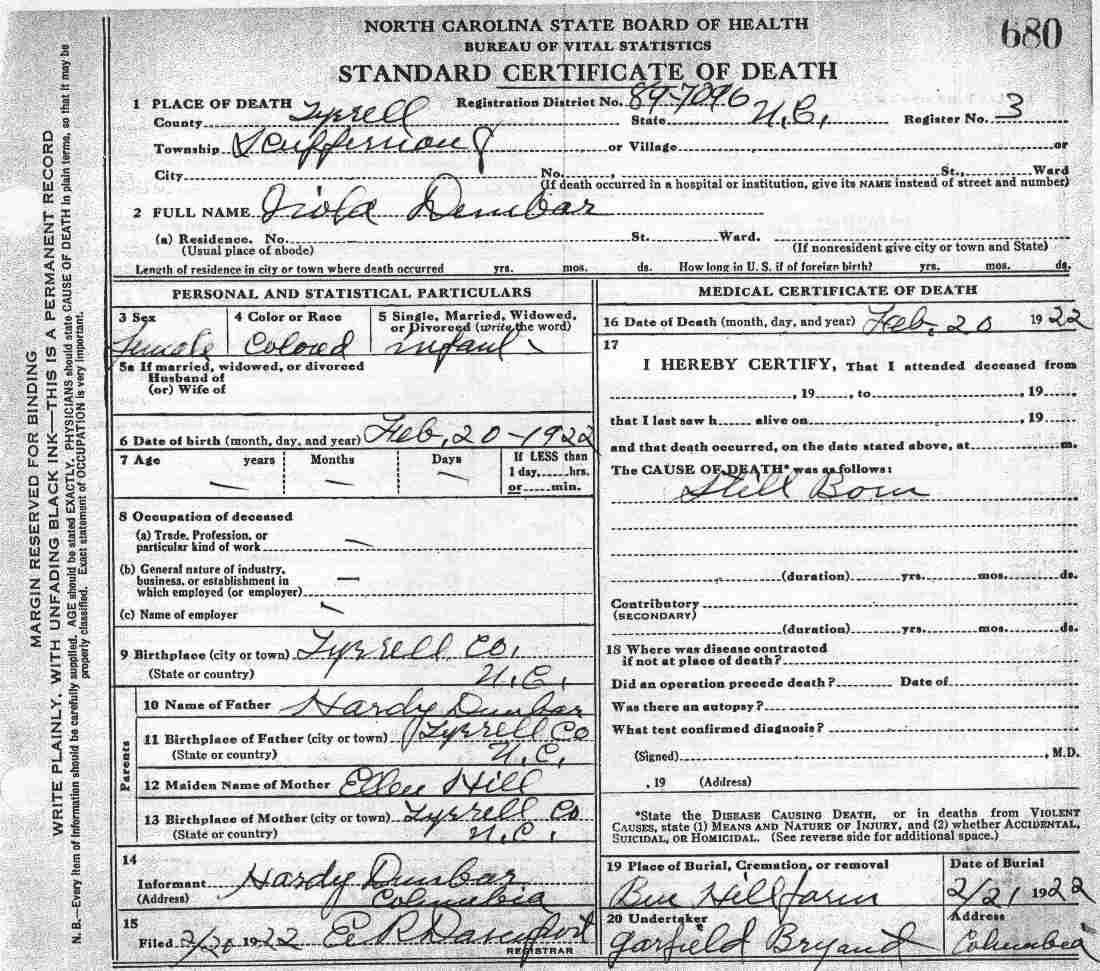 NORTH CAROLINA STATE BOARD OF HEALTH
BUREAU OF VITAL STATISTICS
680
STANDARD CERTIFICATE OF DEATH
1 PLACE OF DEATH Registration District No. 89-7096
County Tyrrell State N.C. Register No. 3
Township Scuppernong or Village or
City No. , St., Ward
(If death occurred in a hospital or institution, give its NAME instead of street and number)
2 FULL NAME Viola Dunbar
(a) Residence. No. St. Ward.
(Usual place of abode) (If nonresident give city or town and State)
Length of residence in city or town where death occurred yrs. mos. ds. How long in U. S. if of foreign birth? yrs. mos. ds.
PERSONAL AND STATISTICAL PARTICULARS
3 Sex 4 Color or Race 5 Single, Married, Widowed,
or Divorced (write the word)
Female Colored infant
5a If married, widowed, or divorced
Husband of
(or) Wife of
6 Date of birth (month, day, and year) Feb, 20-1922
7 Age years Months Days If LESS than
1 day, hrs.
or min.
8 Occupation of deceased
(a) Trade, Profession, or
particular kind of work
(b) General nature of industry,
business, or establishment in
which employed (or employer)
(c) Name of employer
9 Birthplace (city or town) Tyrrell Co,
(State or country) N.C.
Parents
10 Name of Father Hardy Dunbar
11 Birthplace of Father (city or town) Tyrrell Co
(State or country) N.C.
12 Maiden Name of Mother Ellen Hill
13 Birthplace of Mother (city or town) Tyrrell Co
(State or country) N.C.
14
Informant Hardy Dunbar
(Address) Columbia
15
Filed 2/20 1922 E R Davenport
REGISTRAR
MEDICAL CERTIFICATE OF DEATH
16 Date of Death (month, day, and year) Feb, 20 1922
17
I HEREBY CERTIFY, That I attended deceased from
, 19 , to , 19
that I last saw h alive on , 19
and that death occurred, on the date stated above, at m.
The CAUSE OF DEATH* was as follows:
Still Born
(duration) yrs. mos. ds.
Contributory
(SECONDARY)
(duration) yrs. mos. ds.
18 Where was disease contracted
if not at place of death?
Did an operation precede death? Date of
Was there an autopsy?
What test confirmed diagnosis?
(Signed) , M.D.
, 19 (Address)
*State the DISEASE CAUSING DEATH, or in deaths from VIOLENT
CAUSES, state (1) MEANS AND NATURE OF INJURY, and (2) whether ACCIDENTAL,
SUICIDAL, OR HOMICIDAL. (See reverse side for additional space.)
19 Place of Burial, Cremation, or removal Date of Burial
Hill farm 2/21 1922
20 Undertaker Address
Garfield Bryant Columbia
MARGIN RESERVED FOR BINDING
WRITE PLAINLY, WITH UNFADING BLACK INK—THIS IS A PERMANENT RECORD
N. B.—Every item of information should be carefully supplied. AGE should be stated EXACTLY. PHYSICIANS should state CAUSE OF DEATH in plain terms, so that it may be
properly classified. Exact statement of OCCUPATION is very important.